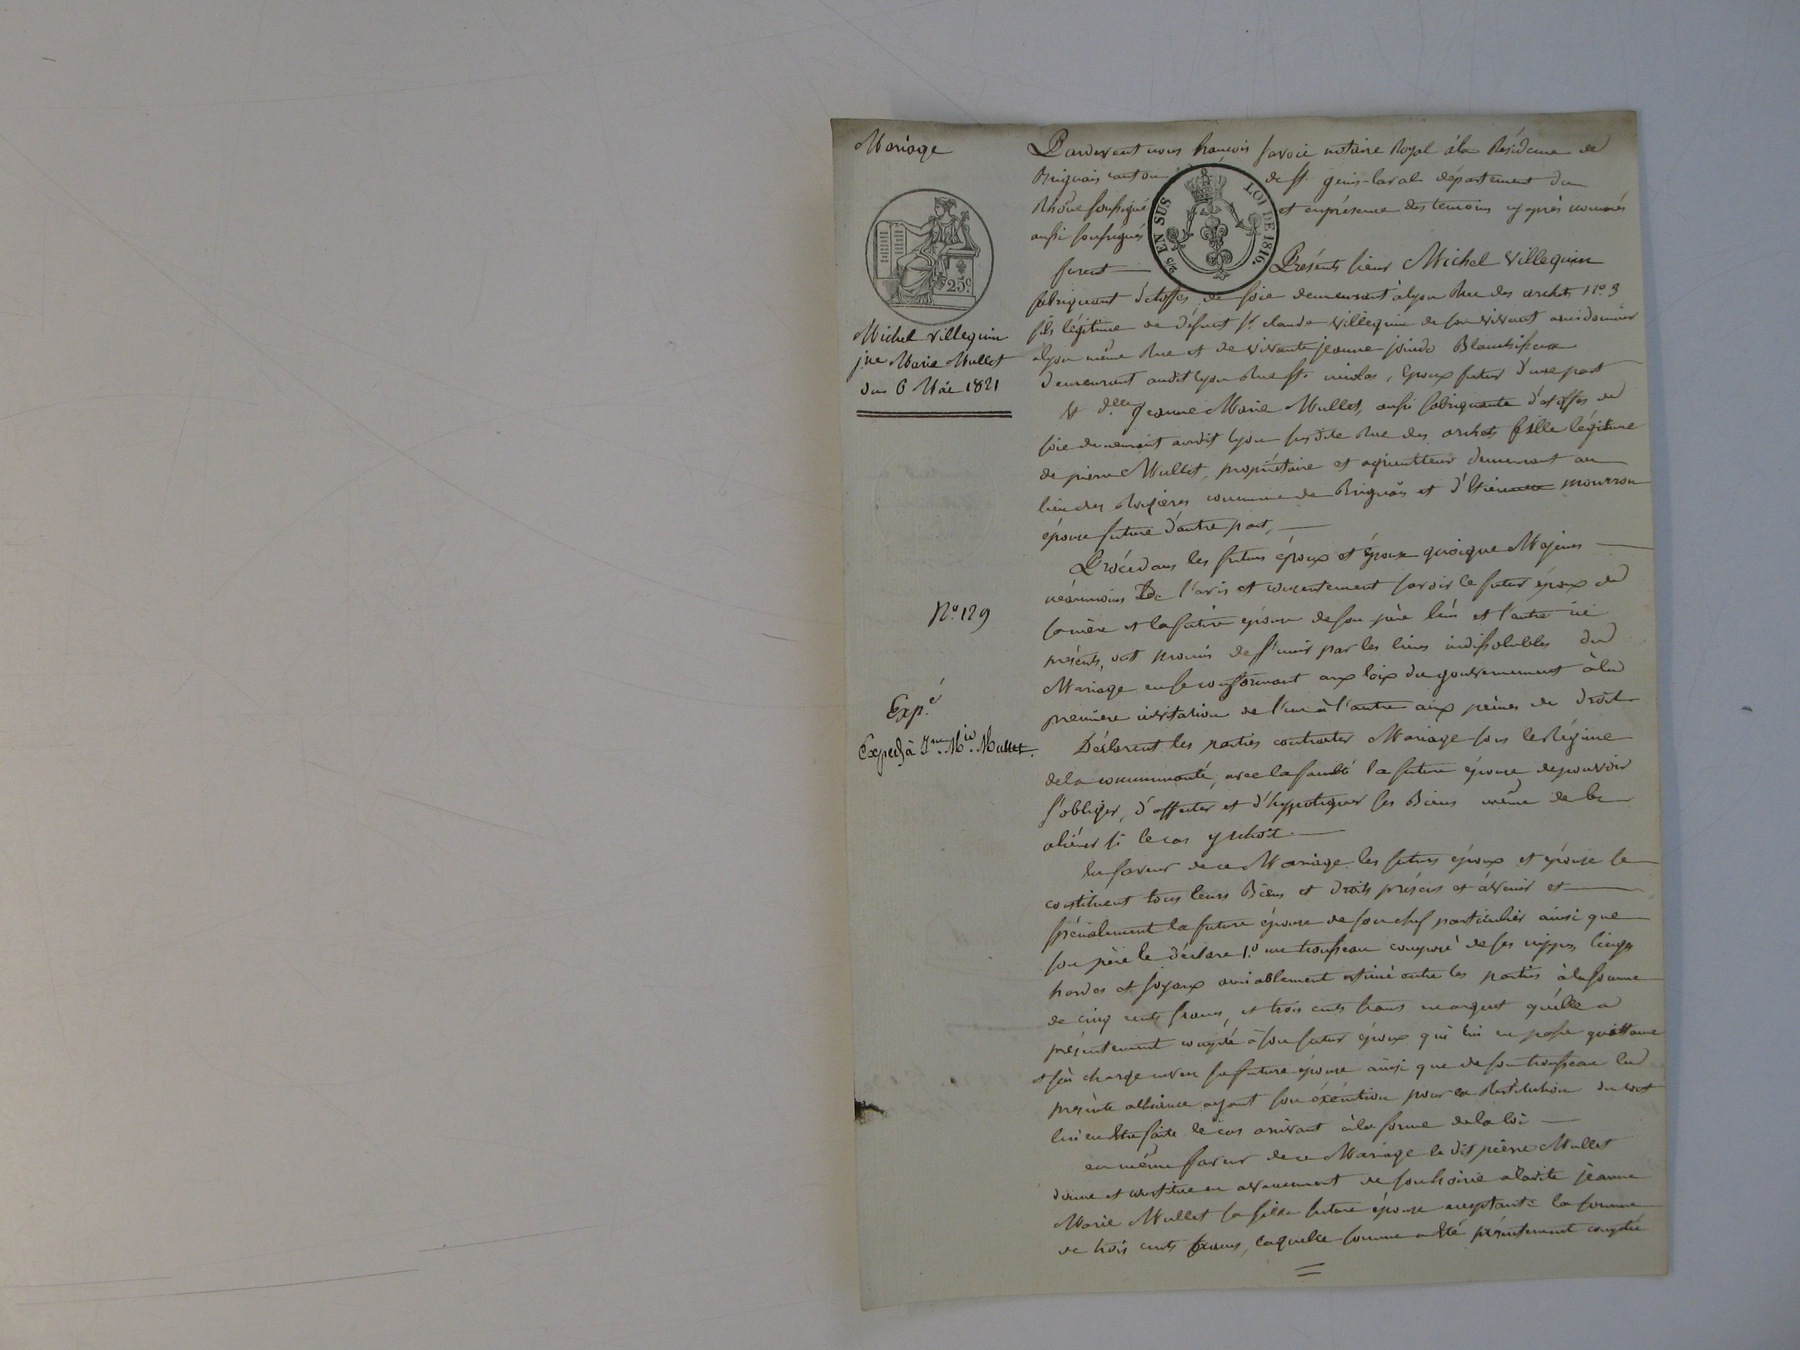 Mariage
25c.
Michel Villequin
jne Marie Mullet
du 6 Mai 1821
No. 129
Exp.é
Exped. à Jne. Mie. Mullet.
Pardevant nous françois Savoie notaire Royal à la Résidence de
Brignais canton de St genis-laval département du
Rhône soussigné et en présence des temoins cy après nommés
aussi soussignés
2/5 EN SUS LOI DE 1816.
furent Présents sieur Michel Villequin
fabriquant d'étoffes de soie demeurant à lyon Rue des archets No. 9
fils légitime de défunt Sr. claude Villequin de son vivant
à lyon même Rue et de vivante jeanne
demeurant audit lyon Rue St. nicolas, époux futur d'une part
Et dlle Jeanne Marie Mullet, aussi fabriquante d'étoffes de
soie demeurant audit lyon susdite Rue des archets fille légitime
de pierre Mullet, propriétaire et agriculteur demeurant au
lieu des commune de Brignais et d'Etiennette mourron
épouse future d'autre part,
Procédans les futurs époux et épouse quoique Majeurs
néanmoins De l'avis et consentement savoir le futur époux de
sa mère et la future épouse de son père l'un et l'autre ici
présents, ont promis de s'unir par les liens indissolubles du
Mariage en se conformant aux loix du gouvernement à la
première invitation de l'un à l'autre aux peines de droit
Déclarent les parties contracter Mariage sous le Régime
de la communauté, avec la faculté la future épouse de pouvoir
s'obliger, d'affecter et d'hypotequer ses Biens même de les
aliéner si le cas y echoit
En faveur de ce Mariage les futurs époux et épouse se
constituent tous leurs Biens et droits présens et àvenir et
spécialement la future épouse de son chef particulier ainsi que
son père le déclare 1.o un trousseau composé de ses nippes linges
hardes et joyaux amiablement estimé entre les parties à la somme
de cinq cents francs, et trois cents francs en argent qu'elle a
présentement compté à son futur époux qui lui en passe quittance
et s'en charge envers sa future épouse ainsi que de son trousseau la
présente alliance ayant son éxécution pour la Restitution du tout
lui en être faite le cas arrivant à la forme de la loi
en même faveur de ce Mariage le dit pierre Mullet
donne et constitue en avancement de son hoirie à ladite jeanne
Marie Mullet sa fille future épouse acceptante la somme
de trois cents francs, laquelle somme a été présentement comptée